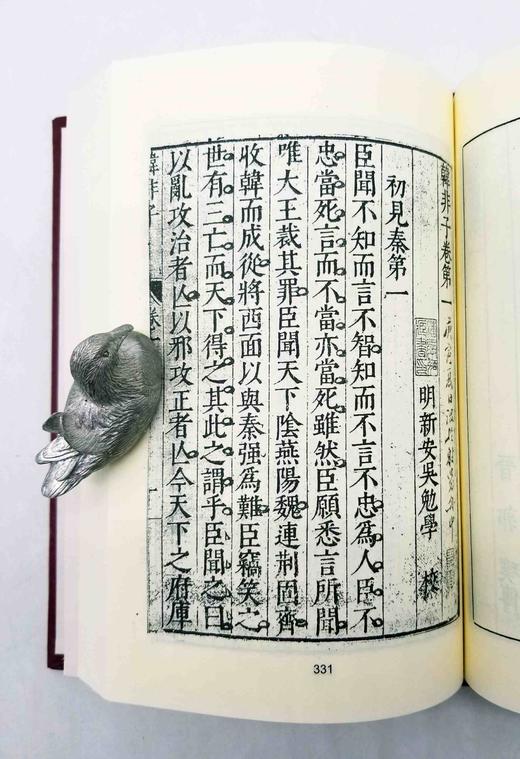 韓非子卷第一
明新安吳勉學 校
初見秦第一
臣聞不知而言不智知而不言不忠為人臣不
忠當死言而不當亦當死雖然臣願悉言所聞
唯大王裁其罪臣聞天下陰燕陽魏連荆固齊
收韓而成從將西面以與秦强為難臣竊笑之
世有三亡而天下得之其此之謂乎臣聞之曰
以亂攻治者亾以邪攻正者亾今天下之府庫
韓非子
卷一
一
331